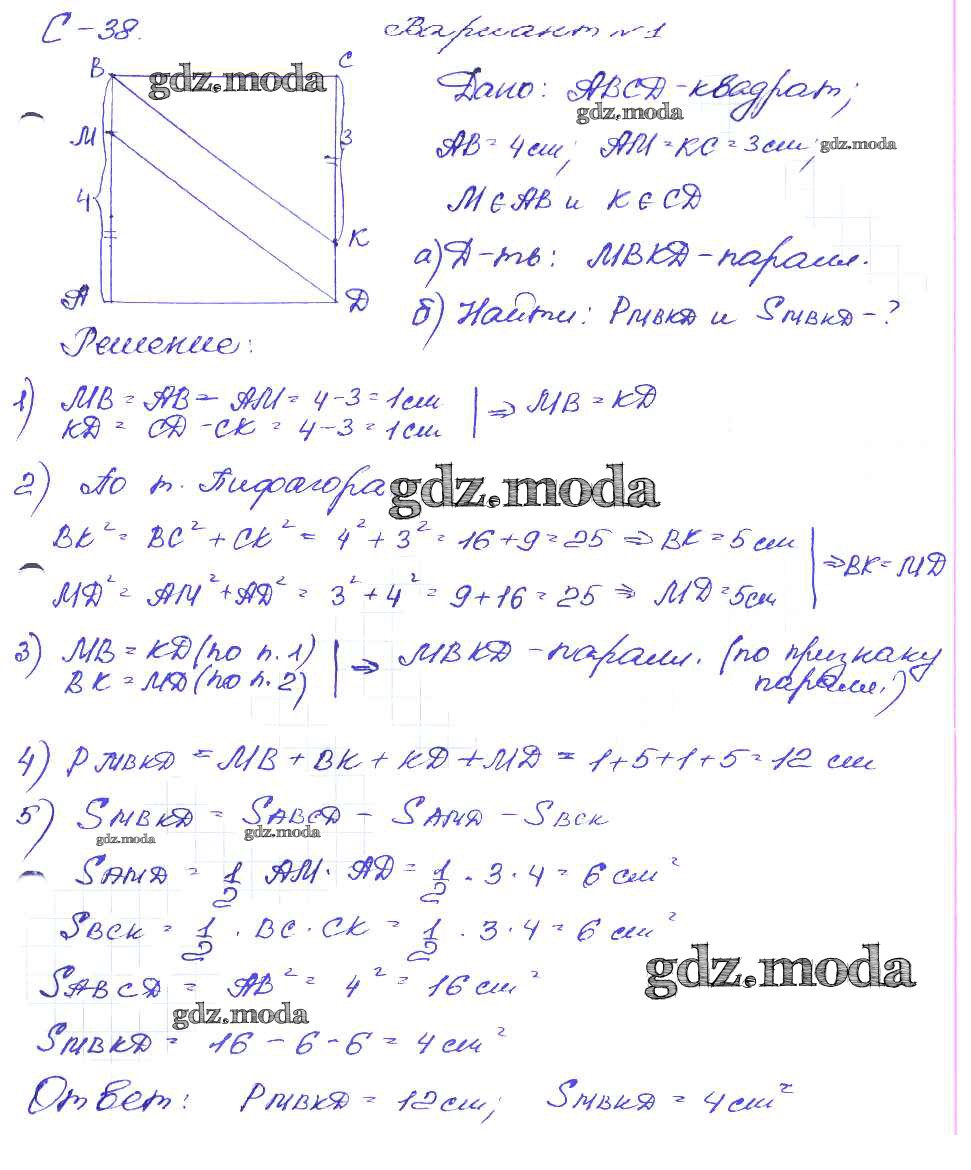 С-38. Вариант №1
B C
gdz.moda
Дано: ABCD-квадрат;
gdz.moda
M 3
AB = 4см; AM = KC = 3см;
gdz.moda
4
M ∈ AB и K ∈ CD
K
а) Д-ть: MBKD - паралл.
A D
б) Найти: P MBKD и S MBKD - ?
Решение:
1) MB = AB - AM = 4-3 = 1см
KD = CD - CK = 4-3 = 1см
⇒ MB = KD
2) По т. Пифагора
gdz.moda
BK² = BC² + CK² = 4² + 3² = 16 + 9 = 25 ⇒ BK = 5см
MD² = AM² + AD² = 3² + 4² = 9 + 16 = 25 ⇒ MD = 5см
⇒ BK = MD
3) MB = KD (по п. 1)
BK = MD (по п. 2)
⇒ MBKD - паралл. (по признаку
паралл.)
4) P MBKD = MB + BK + KD + MD = 1+5+1+5 = 12 см
5) S MBKD = S ABCD - S AMD - S BCK
gdz.moda gdz.moda
S AMD = 1/2 AM · AD = 1/2 · 3 · 4 = 6 см²
S BCK = 1/2 · BC · CK = 1/2 · 3 · 4 = 6 см²
gdz.moda
S ABCD = AB² = 4² = 16 см²
gdz.moda
S MBKD = 16 - 6 - 6 = 4 см²
Ответ: P MBKD = 12см; S MBKD = 4см²